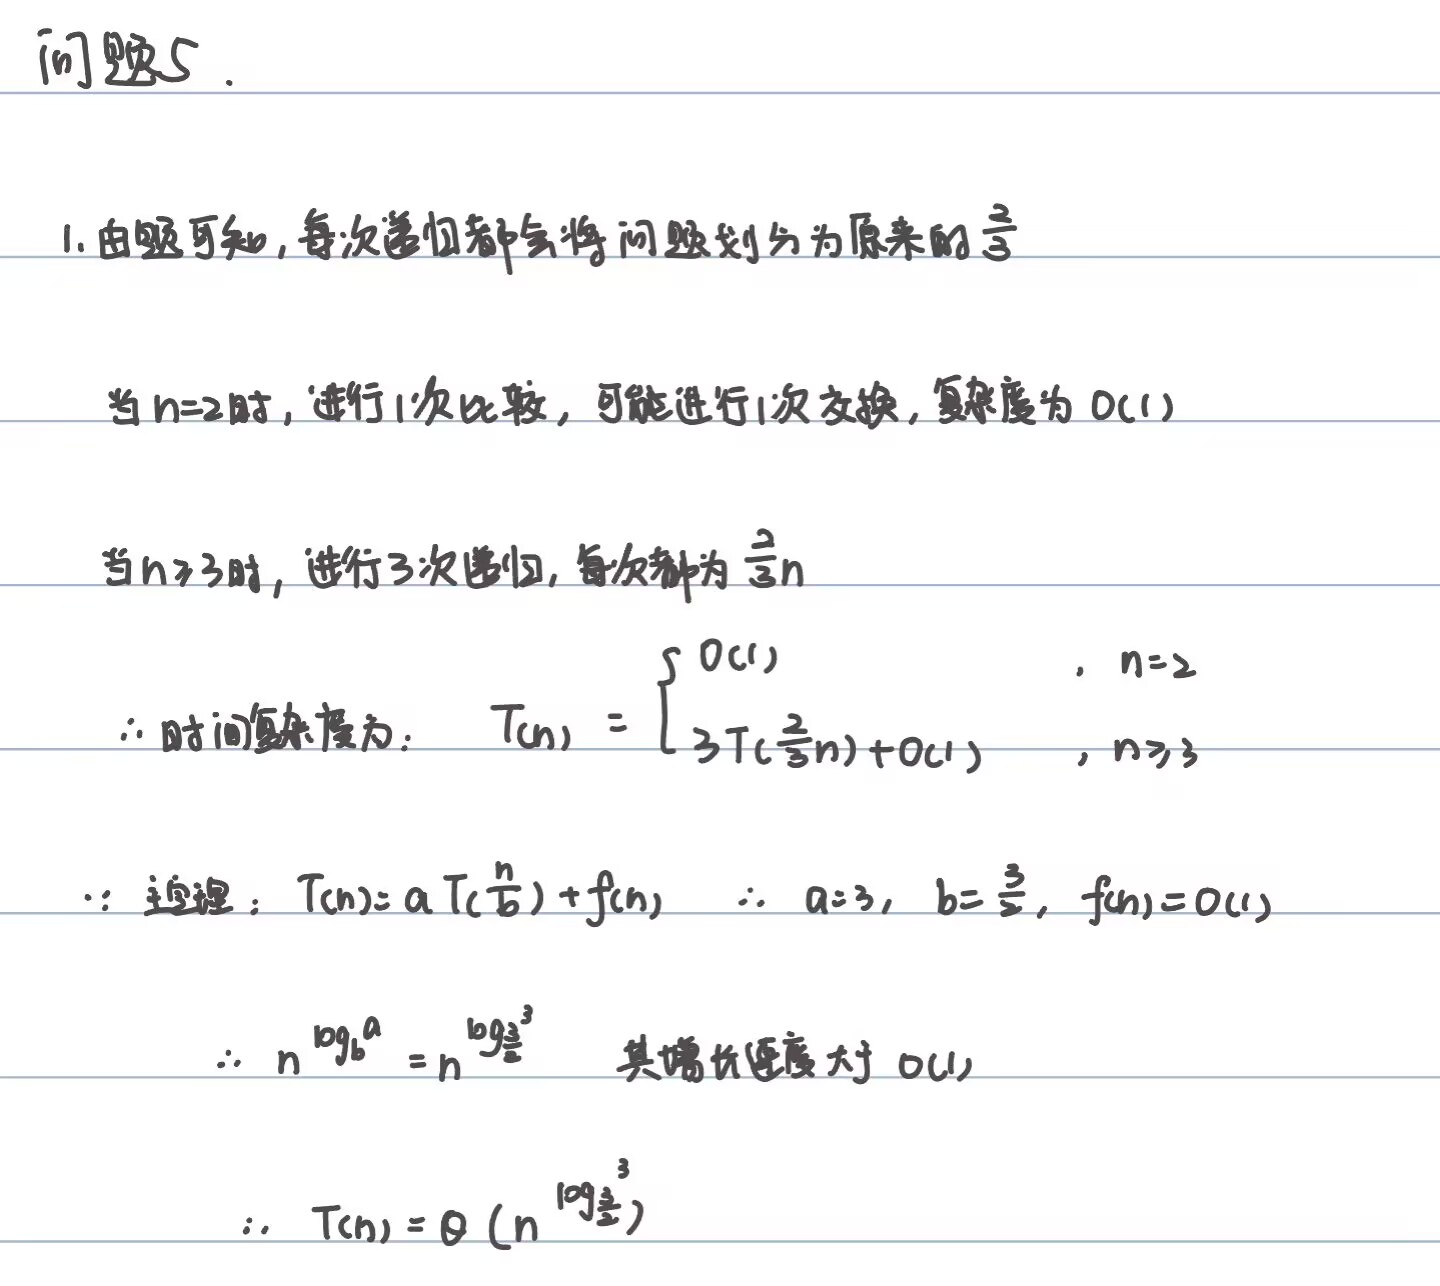 问题5.
1. 由题可知, 每次递归都会将问题划分为原来的 2/3
当 n=2时, 进行1次比较, 可能进行1次交换, 复杂度为 O(1)
当 n≥3时, 进行3次递归, 每次都为 2/3 n
∴ 时间复杂度为: T(n) = { O(1) , n=2
3T(2/3 n)+O(1) , n≥3
∵ 主定理: T(n)=aT(n/b)+f(n) ∴ a=3, b=3/2, f(n)=O(1)
∴ n^(log_b a) = n^(log_(3/2) 3) 其增长速度大于 O(1)
∴ T(n) = θ(n^(log_(3/2) 3))